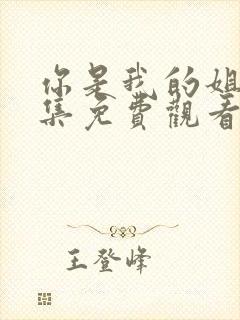 你是我的姐
集免費觀看
王登峰